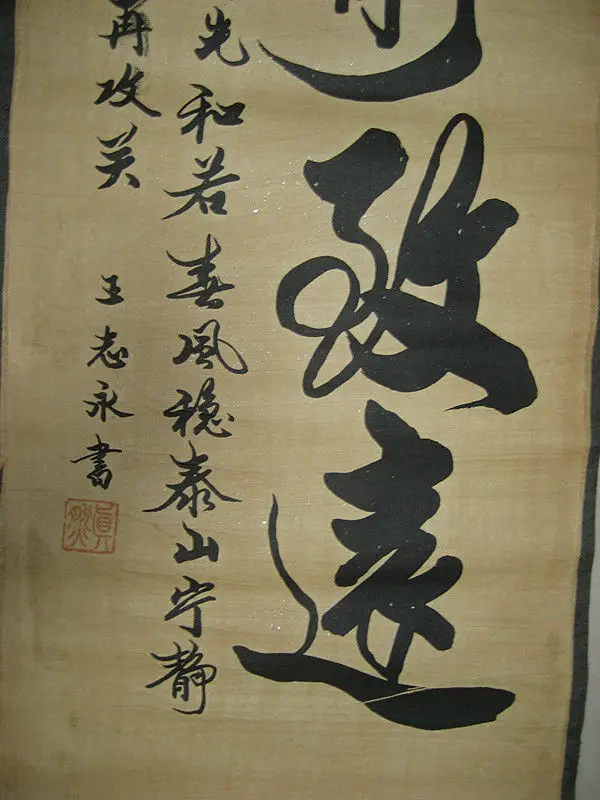 致遠
先和若春風稳泰山宁静
再攻关
王志永書